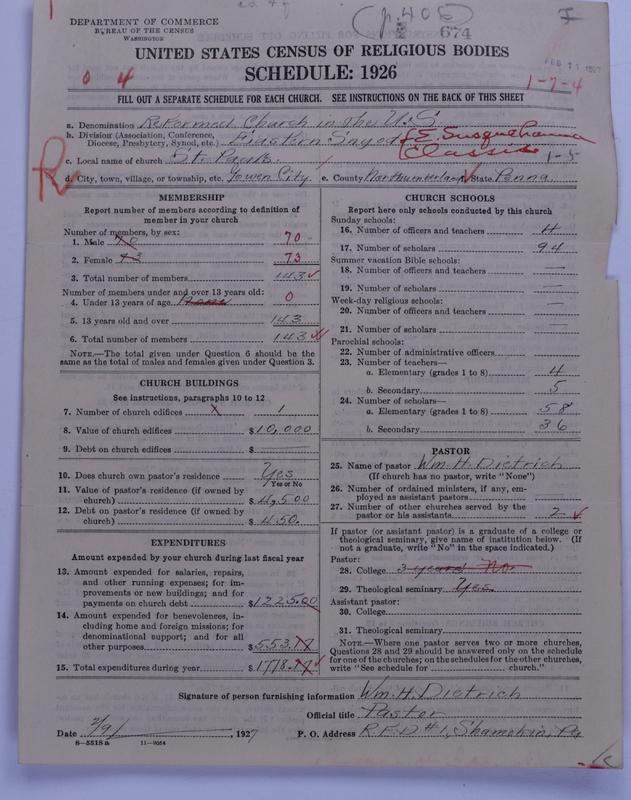 DEPARTMENT OF COMMERCE
BUREAU OF THE CENSUS
WASHINGTON
p. 405
674
UNITED STATES CENSUS OF RELIGIOUS BODIES
SCHEDULE: 1926
FEB 11 1927
0 4
1-7-4
FILL OUT A SEPARATE SCHEDULE FOR EACH CHURCH. SEE INSTRUCTIONS ON THE BACK OF THIS SHEET
a. Denomination Reformed Church in the U.S.
b. Division (Association, Conference, Diocese, Presbytery, Synod, etc.) Eastern Synod E. Susquehanna Classis
c. Local name of church St. Paul's 1-5
d. City, town, village, or township, etc. Gowen City e. County Northumberland State Penna.
R
MEMBERSHIP
Report number of members according to definition of
member in your church
Number of members, by sex:
1. Male 70 70
2. Female 73 73
3. Total number of members 143
Number of members under and over 13 years old:
4. Under 13 years of age 0
5. 13 years old and over 143
6. Total number of members 143
NOTE.—The total given under Question 6 should be the
same as the total of males and females given under Question 3.
CHURCH BUILDINGS
See instructions, paragraphs 10 to 12
7. Number of church edifices 1
8. Value of church edifices $ 10,000
9. Debt on church edifices $ —
10. Does church own pastor's residence? Yes
Yes or No
11. Value of pastor's residence (if owned by
church) $ 4,500
12. Debt on pastor's residence (if owned by
church) $ 450.
EXPENDITURES
Amount expended by your church during last fiscal year
13. Amount expended for salaries, repairs,
and other running expenses; for im-
provements or new buildings; and for
payments on church debt $ 1225.00
14. Amount expended for benevolences, in-
cluding home and foreign missions; for
denominational support; and for all
other purposes $ 553.
15. Total expenditures during year $ 1778.
CHURCH SCHOOLS
Report here only schools conducted by this church
Sunday schools:
16. Number of officers and teachers
17. Number of scholars 94
Summer vacation Bible schools:
18. Number of officers and teachers —
19. Number of scholars —
Week-day religious schools:
20. Number of officers and teachers —
21. Number of scholars —
Parochial schools:
22. Number of administrative officers
23. Number of teachers—
a. Elementary (grades 1 to 8) 4
b. Secondary 5
24. Number of scholars—
a. Elementary (grades 1 to 8) 58
b. Secondary 36
PASTOR
25. Name of pastor Wm. H. Dietrich
(If church has no pastor, write "None")
26. Number of ordained ministers, if any, em-
ployed as assistant pastors —
27. Number of other churches served by the
pastor or his assistants 2
If pastor (or assistant pastor) is a graduate of a college or
theological seminary, give name of institution below. (If
not a graduate, write "No" in the space indicated.)
Pastor:
28. College 3 years No
29. Theological seminary Yes
Assistant pastor:
30. College
31. Theological seminary
NOTE.—Where one pastor serves two or more churches,
Questions 28 and 29 should be answered only on the schedule
for one of the churches; on the schedules for the other churches,
write "See schedule for church."
Signature of person furnishing information Wm. H. Dietrich
Official title Pastor
Date 2/9/, 1927 P. O. Address R.F.D #1, Shamokin, Pa
8—5518 a 11—9054